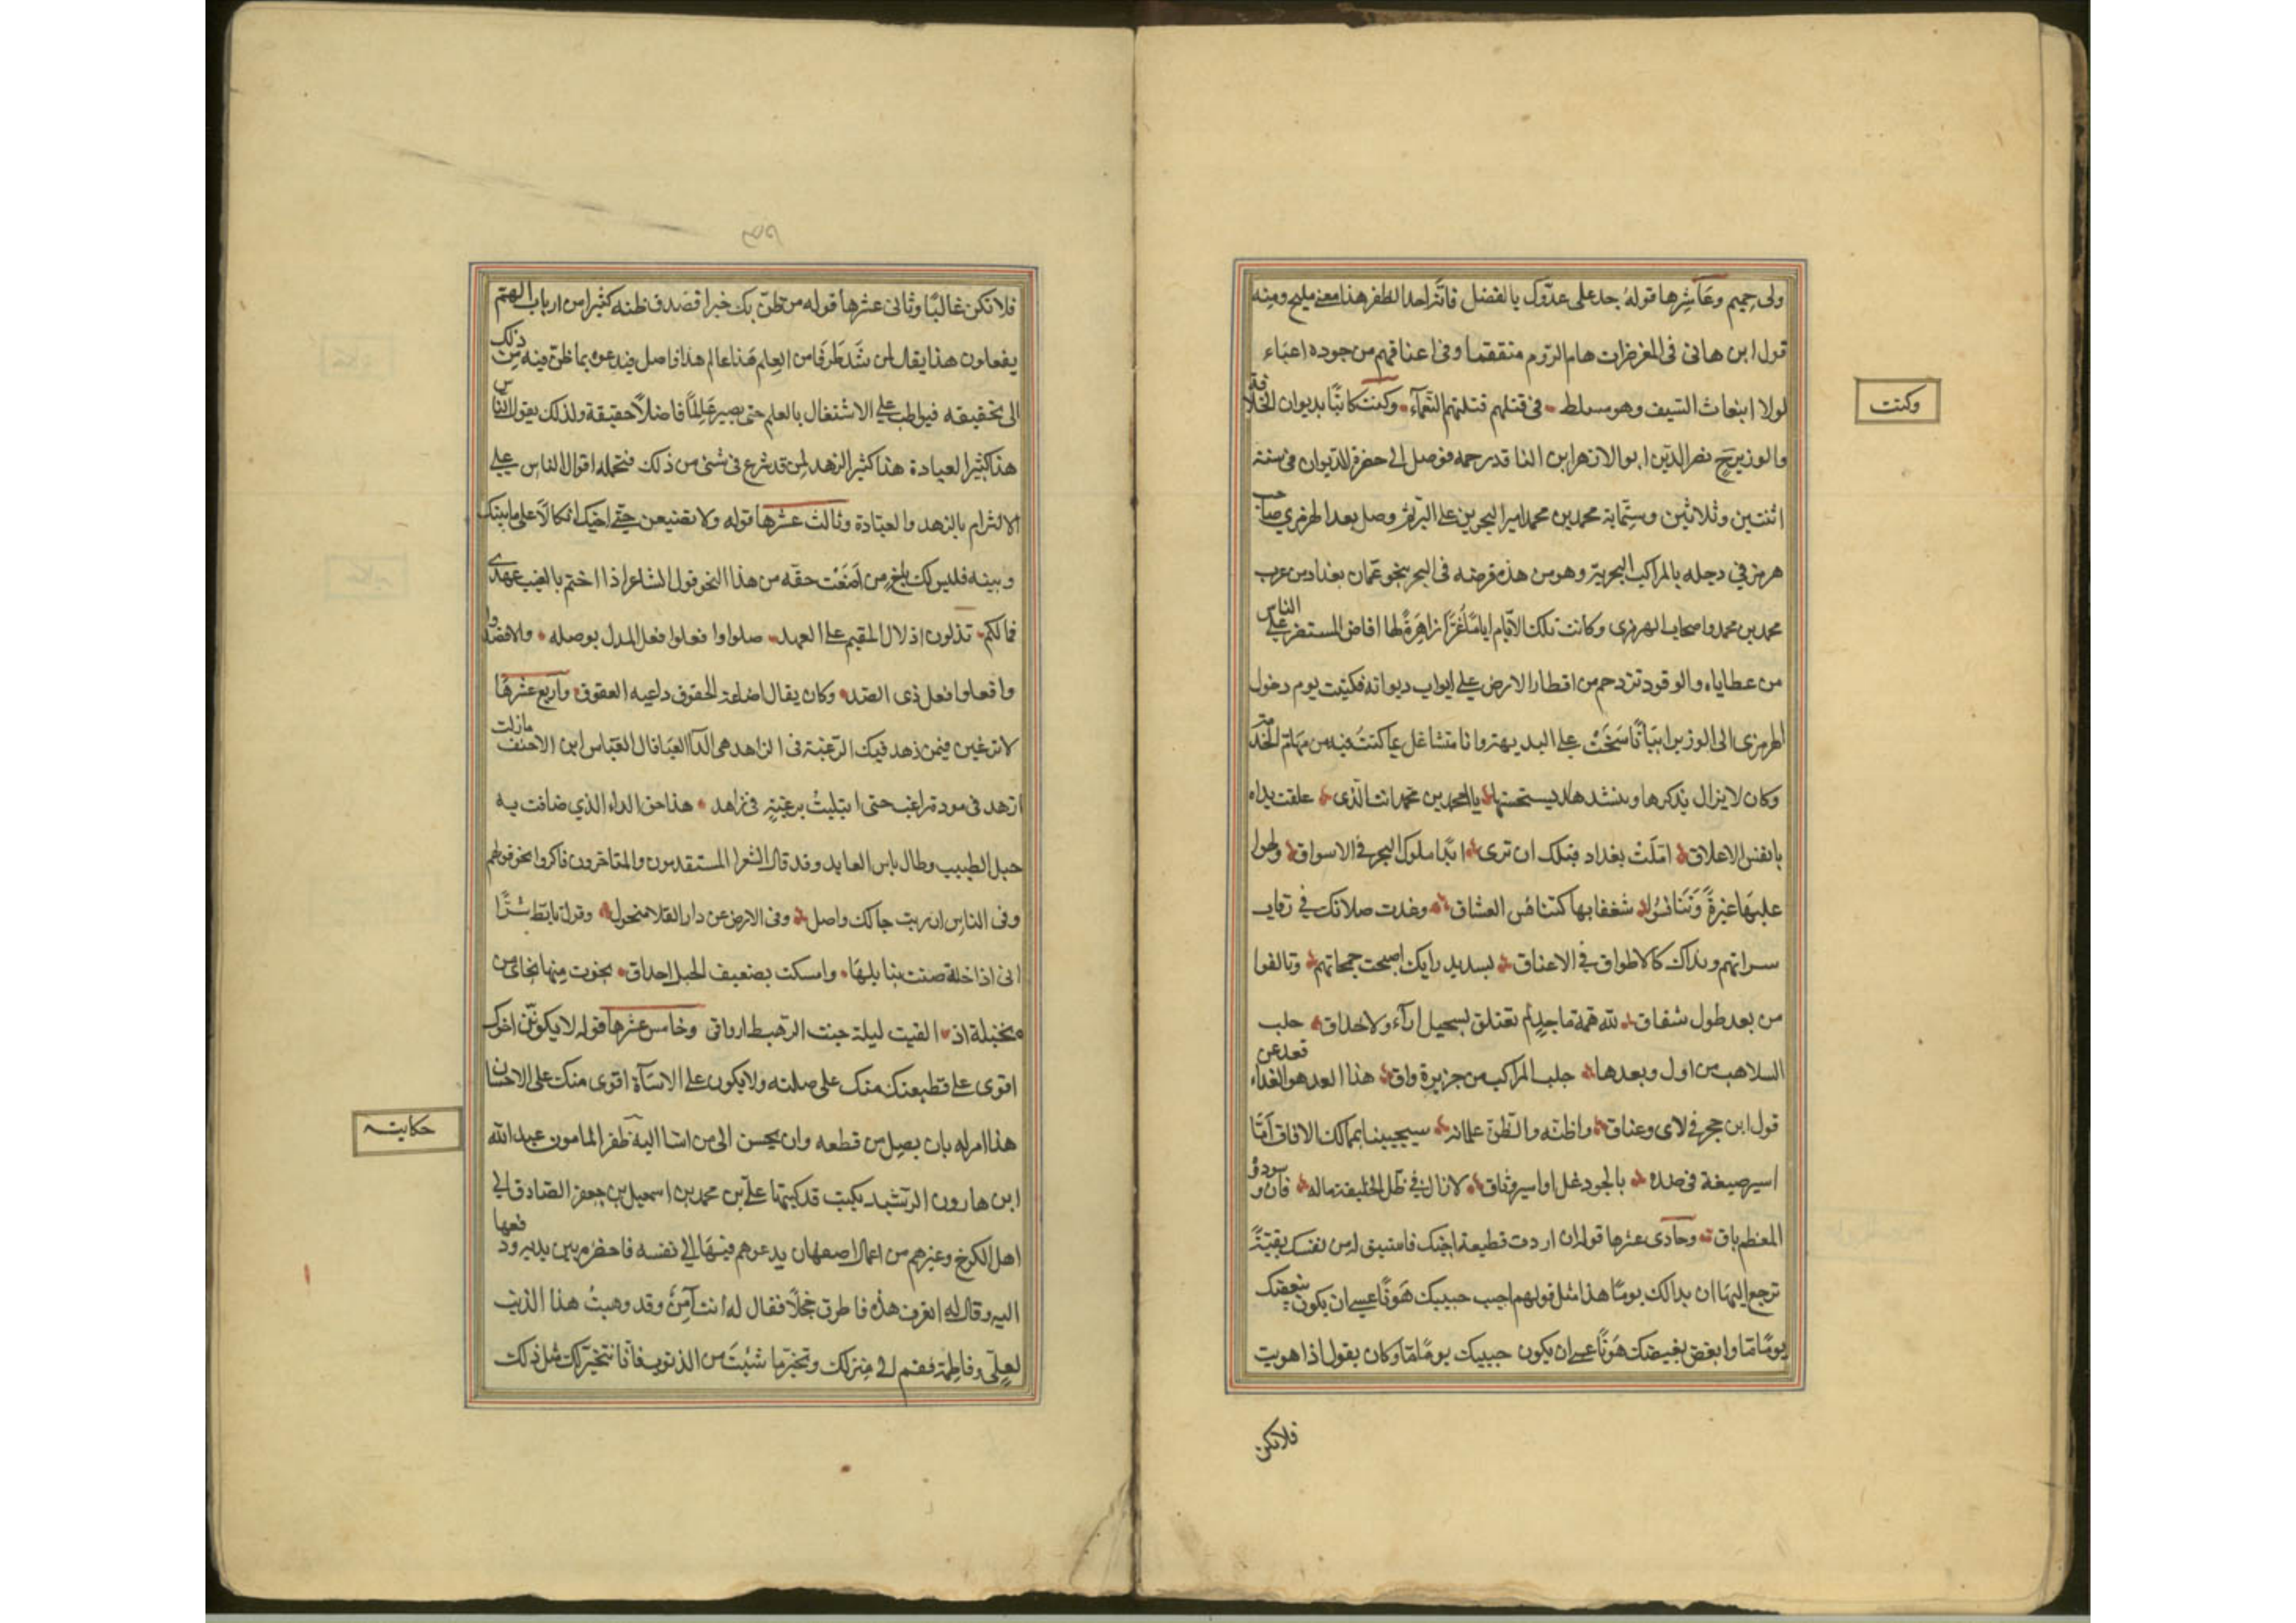 ولى حميم وعاشرها قوله جد على عدوك بالفضل فانه احد الظفر هذا معنى مليح ومنه
قول ابن هانى فى المعز ضرات هام الروم منتقما وفى اعناقهم من جوده اعباء
لولا انبعاث السيف وهو مسلط فى قتلهم قتلتهم النعماء وكنت كاتبا بديوان الخلافة
وكنت
والوزير نصر الدين ابو الازهر ابن الناقد رحمه فوصل الى حضرة الديوان فى سنة
اثنتين وثلاثين وستماية محمد بن محمد امير البحرين على البر ثم وصل بعد الهرمزى صاحب
هرمز فى دجله بالمراكب البحرية وهرمز هذه فرضه فى البحر نحو عمان بغداد من عرب
محمد بن محمد واصحاب الهرمزى وكانت تلك الايام اياما غرا زاهرة لها افاض المستنصر على الناس
من عطاياه والوفود تزدحم من اقطار الارض على ابواب ديوانه فكتبت يوم دخول
الهرمزى الى الوزير ابياتا سنحت على البديهة وانا متشاغل عما كنت فيه من مهام الخدمة
وكان لا يزال يذكرها وينشدها ويستحسنها يا احمد بن محمد انت الذى علقت يداه
بانفس الاعلاق ما املت بغداد قبلك ان ترى ابدا ملوك البحر فى الاسواق ولهوا
عليها غيرة وتنافسوا شغفا بها كتنافس العشاق وغدت صلاتك فى رقاب
سراتهم ونداك كالاطواق فى الاعناق بسديد رايك اصبحت جمحاتهم وتالفوا
من بعد طول شقاق لله همة ماجد لم تعتلق بسحيل اراء ولا اخلاق جلب
السلاهب من اول وبعدها جلب المراكب من جزيرة واق هذا العد هو الغداء فعد عن
قول ابن حجر فى لاى وعناق واظنه والظن علم انه سيجيبنا بممالك الافاق اما
اسير صيغة فى صده بالجود غل او اسير وثاق لا زال فى ظل الخليفة ماله فان وسودد
المعظم باق وحادى عشرها قوله ان اردت قطيعة اخيك فاستبق له من نفسك بقية
ترجع اليها ان بدا لك يوما هذا مثل قولهم احبب حبيبك هونا عسى ان يكون بغيضك
يوما ما وابغض بغيضك هونا عسى ان يكون حبيبك يوما ما وكان يقول اذا هويت
فلاتكن
فلاتكن غاليا وثانى عشرها قوله من ظن بك خيرا فصدق ظنه كثير من ارباب الهمم
يفعلون هذا يقال لمن شدا طرفا من العلم هذا عالم هذا فاضل فيدعوه بما ظن فيه من ذلك
الى تحقيقه فيواظب على الاشتغال بالعلم حتى يصير عالما فاضلا حقيقة ولذلك يقول الناس
هذا كثير العبادة هذا كثير الزهد لمن قد شرع فى شئ من ذلك فتحمله اقوال الناس على
الالتزام بالزهد والعبادة وثالث عشرها قوله ولا تضيعن حق اخيك اتكالا على ما بينك
وبينه فليس لك باخ من اضعت حقه من هذا النحو قول الشاعر اذا خنتم بالغيب عهدى
فما لكم تدلون ادلال المقيم على العهد صلوا وافعلوا فعل المدل بوصله والا فصدوا
وافعلوا فعل ذى الصد وكان يقال اضاعة الحقوق داعيه العقوق ورابع عشرها
لا ترغبن فيمن زهد فيك الرغبة فى الزاهد هى الداء العياء قال العباس ابن الاحنف مازلت
ازهد فى مودة راغب حتى ابتليت برغبة فى زاهد هذا هو الداء الذي ضاقت به
حيل الطبيب وطال ياس العايد وقد قال الشعرا المتقدمون والمتاخرون فاكثروا نحو قولهم
وفى الناس ان رثت حبالك واصل وفى الارض عن دار القلا متحول وقول تابط شرا
انى اذا خلة ضنت بنايلها وامسكت بضعيف الحبل احذاق نجوت منها نجاى من
بجيلة اذ القيت ليلة جنب الرهط ارواقى وخامس عشرها قوله لا يكونن اخوك
اقوى على قطيعتك منك على صلته ولا يكون على الاساءة اقوى منك على الاحسان
هذا امر له بان يصل من قطعه وان يحسن الى من اساء اليه ظفر المامون عبد الله
حكايت
ابن هارون الرشيد بكتب قد كتبها على بن محمد بن اسمعيل بن جعفر الصادق الى
اهل الكرخ وغيرهم من اعمال اصفهان يدعوهم فيها الى نفسه فاحضره بين يديه ودفعها
اليه وقال له اتعرف هذه فاطرق خجلا فقال له انت آمن وقد وهبت هذا الذنب
لعلى وفاطمة فقم الى منزلك وتخير ما شئت من الذنوب فانا نتخير لك مثل ذلك